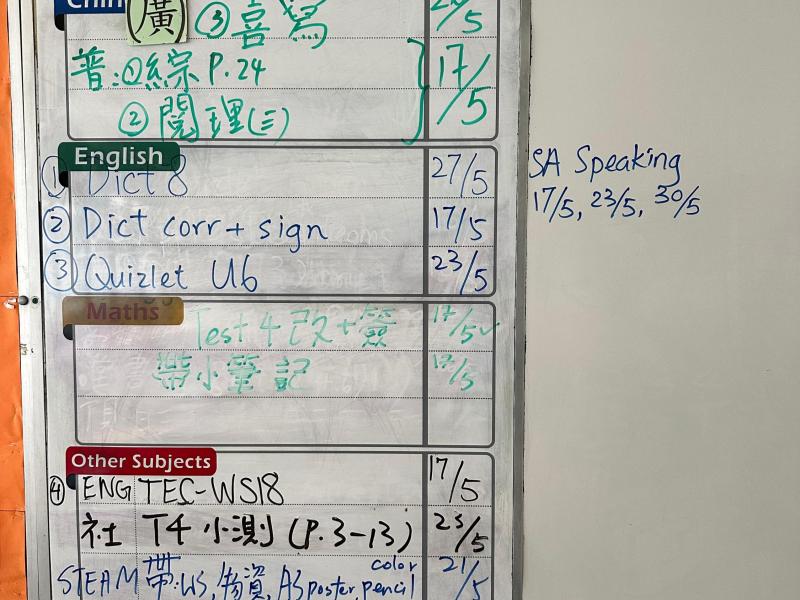 Chin
(黃)
③喜寫
/5
普:①綜 P.24
②閱理(三)
17/5
English
① Dict 8 27/5
② Dict corr + sign 17/5
③ Quizlet U6 23/5
SA Speaking
17/5, 23/5, 30/5
Maths
Test 4 改+簽 17/5✓
帶小筆記 17/5
Other Subjects
④ ENG TEC-WS18 17/5
社 T4 小測 (P.3-13) 23/5
STEAM 帶:WS, 物資, A3 poster, color pencil 21/5